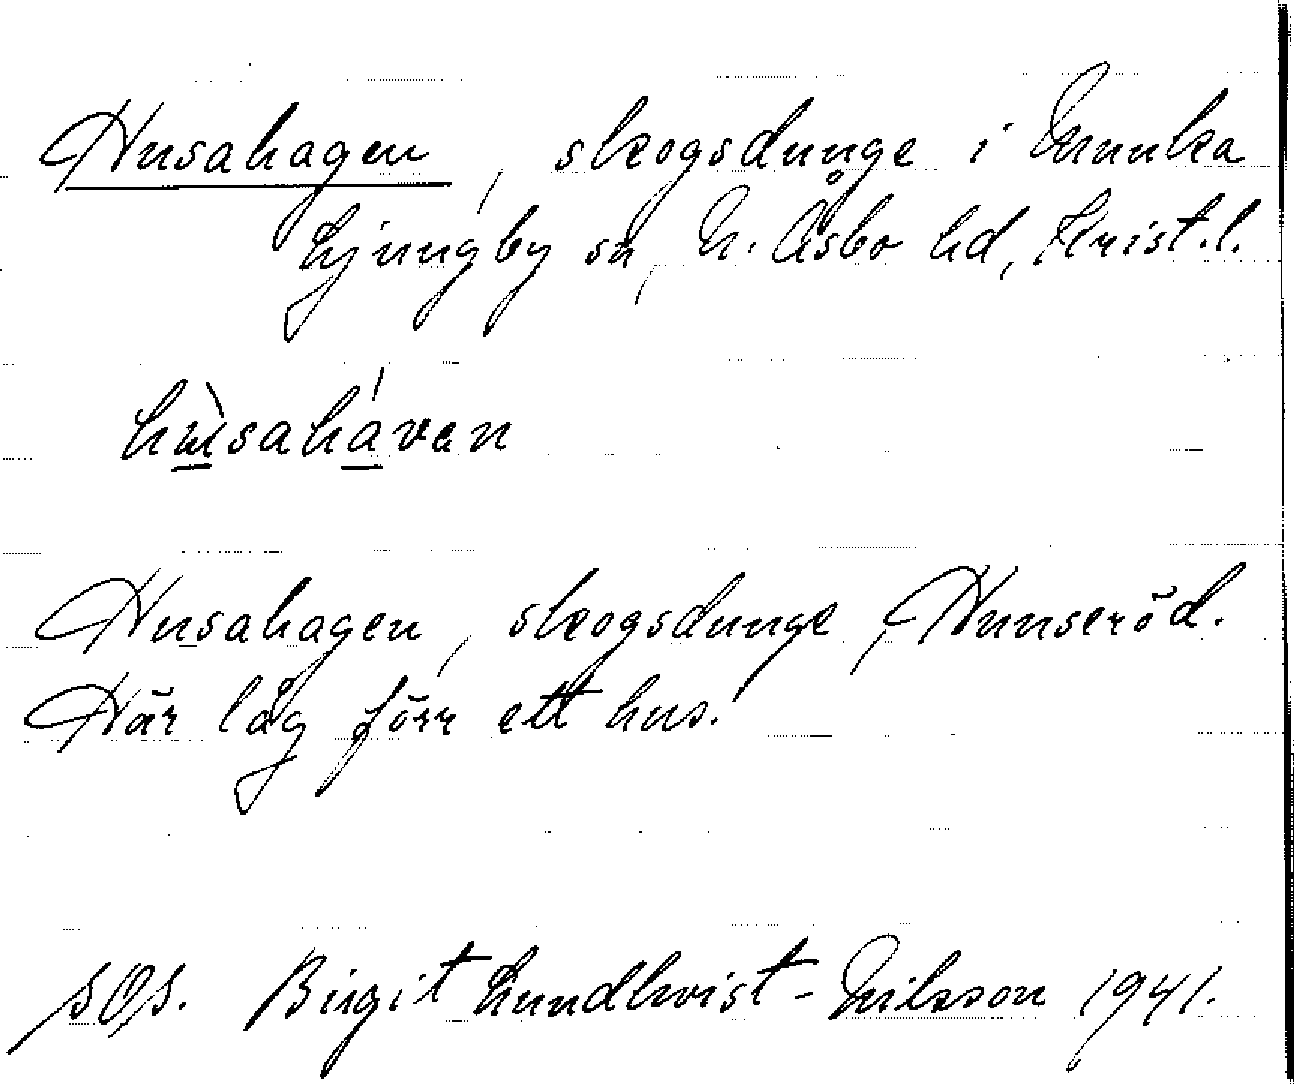 Husahagen, skogsdunge i Munka
Ljungby sn, N. Åsbo hd, Krist.l.
hùsahávan
Husahagen, skogsdunge, Hunseröd.
Här låg förr ett hus.
SOS. Birgit Lundkvist-Nilsson 1941.